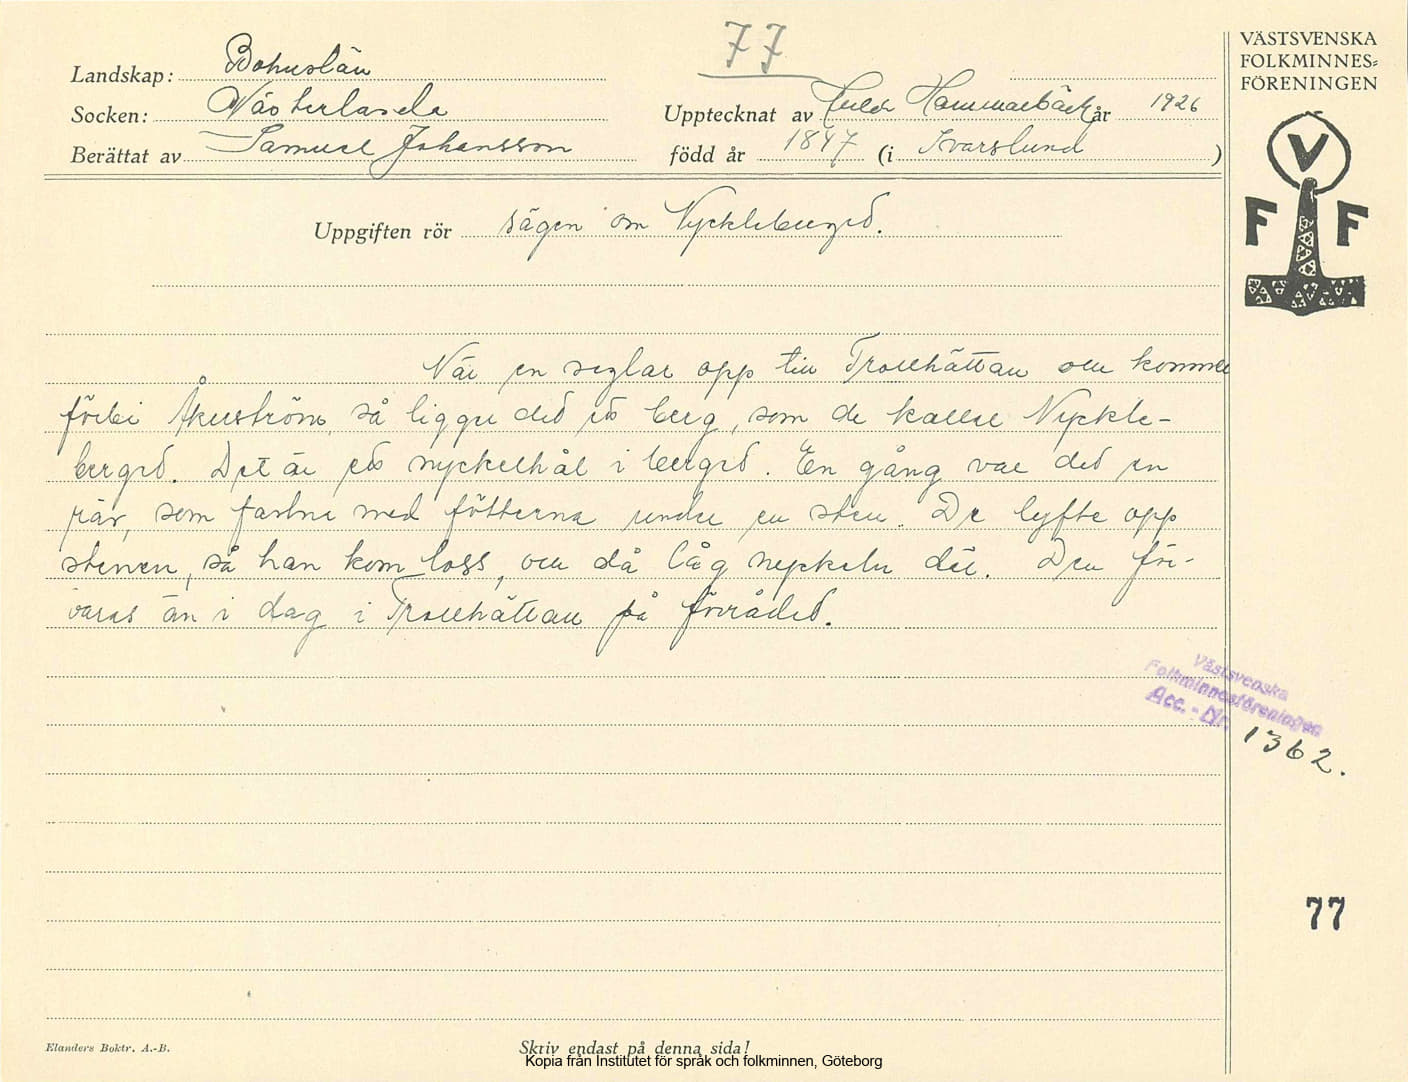 77
VÄSTSVENSKA
FOLKMINNES=
FÖRENINGEN
Landskap: Bohuslän
Socken: Västerlanda
Upptecknat av Hammarbäck år 1926
Berättat av Samuel Johansson
född år 1847 (i Ivarslund)
V
F F
Uppgiften rör sägen om Nyckleberged.
När en seglar opp till Trollhättan ou kommer
förbi Åkerström, så ligger ded ett berg, som de kallar Nyckle-
berged. Det är ett nyckelhål i berged. En gång var ded en
räv, som fastna med fötterna under en sten. De lyfte opp
stenen, så han kom loss, ou då låg nyckeln där. Den för-
varas än i dag i Trollhättan på förråded.
Västsvenska
Folkminnesföreningen
Acc. - Nr. 1362.
77
Elanders Boktr. A.-B.
Skriv endast på denna sida!
Kopia från Institutet för språk och folkminnen, Göteborg